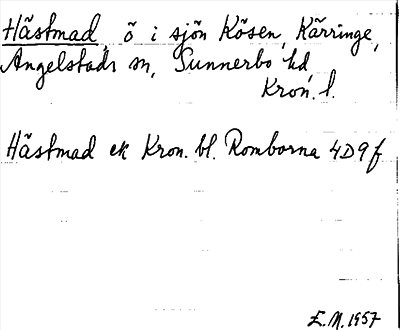 Hästmad, ö i sjön Kösen, Kärringe,
Angelstads sn, Sunnerbo hd,
Kron. l.
Hästmad ek Kron. bl. Romborna 4D9f
E.N. 1957